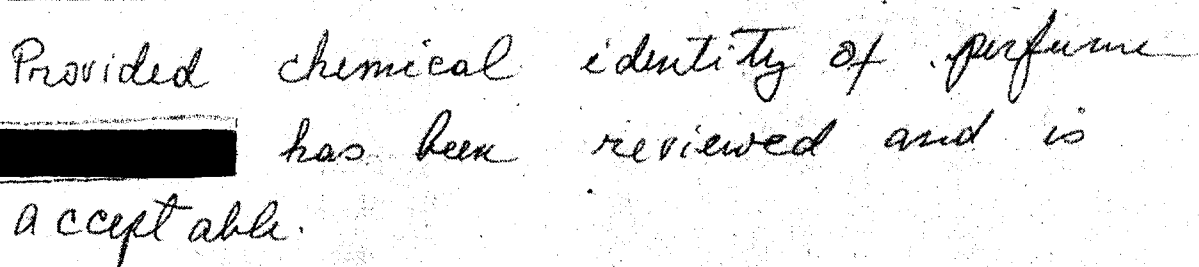 Provided chemical identity of perfume
has been reviewed and is
acceptable.